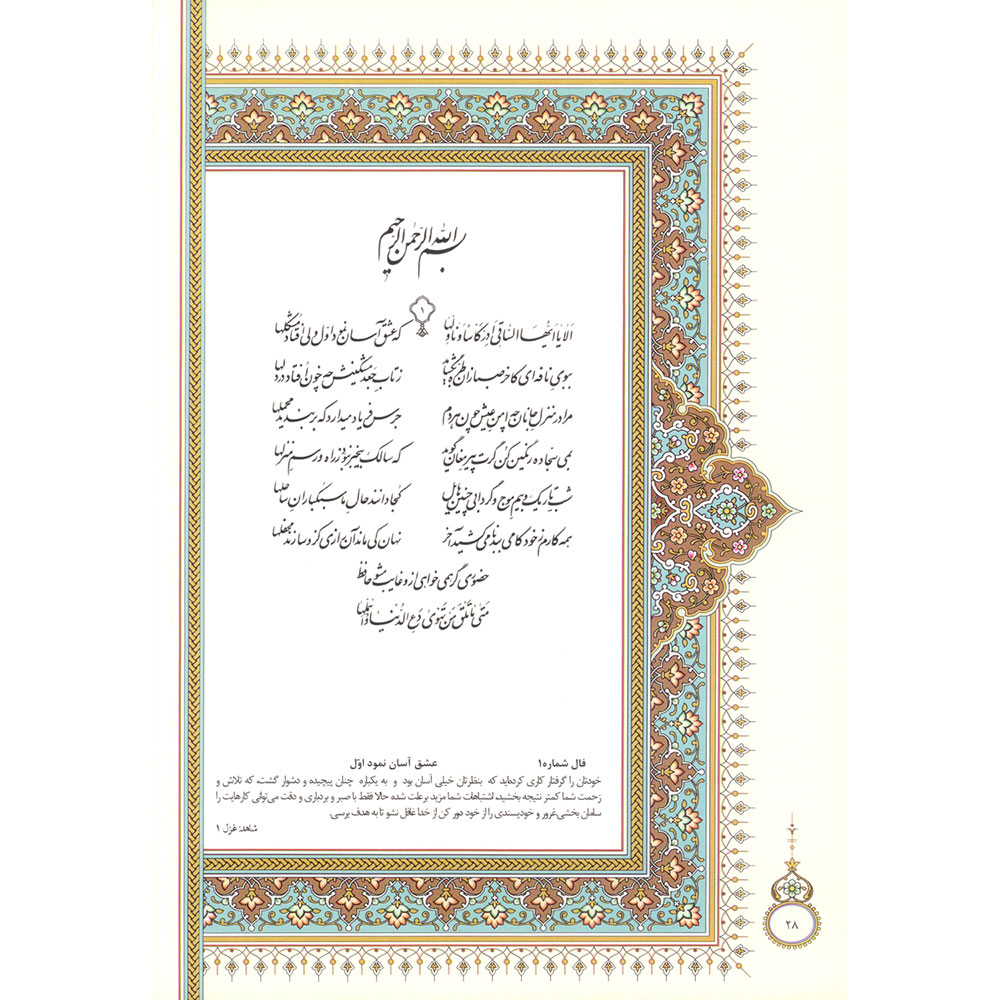 بسم الله الرحمن الرحیم
۱
اَلا یا اَیُّهَا السّاقی اَدِر کَاْساً وَ ناوِلها که عشق آسان نمود اوّل ولی افتاد مشکلها
ببوی نافه‌ای کاخر صبا زان طرّه بگشاید ز تاب جعد مشکینش چه خون افتاد در دلها
مرا در منزل جانان چه امن عیش چون هر دم جرس فریاد میدارد که بربندید محملها
بمی سجاده رنگین کن گرت پیر مغان گوید که سالک بیخبر نبود ز راه و رسم منزلها
شب تاریک و بیم موج و گردابی چنین هایل کجا دانند حال ما سبکباران ساحلها
همه کارم ز خود کامی ببدنامی کشید آخر نهان کی ماند آن رازی کزو سازند محفلها
حضوری گر همی خواهی ازو غایب مشو حافظ
مَتی ما تَلْقَ مَن تَهْوی دَعِ الدُّنْیا وَ اَهْمِلْها
فال شماره۱ عشق آسان نمود اوّل
خودتان را گرفتار کاری کرده‌اید که بنظرتان خیلی آسان بود و به یکباره چنان پیچیده و دشوار گشت، که تلاش و
زحمت شما کمتر نتیجه بخشید، اشتباهات شما مزید برعلت شده حالا فقط با صبر و بردباری و دقت می‌توانی کارهایت را
سامان بخشی،غرور و خودپسندی را از خود دور کن از خدا غافل نشو تا به هدف برسی.
شاهد: غزل ۱
۲۸